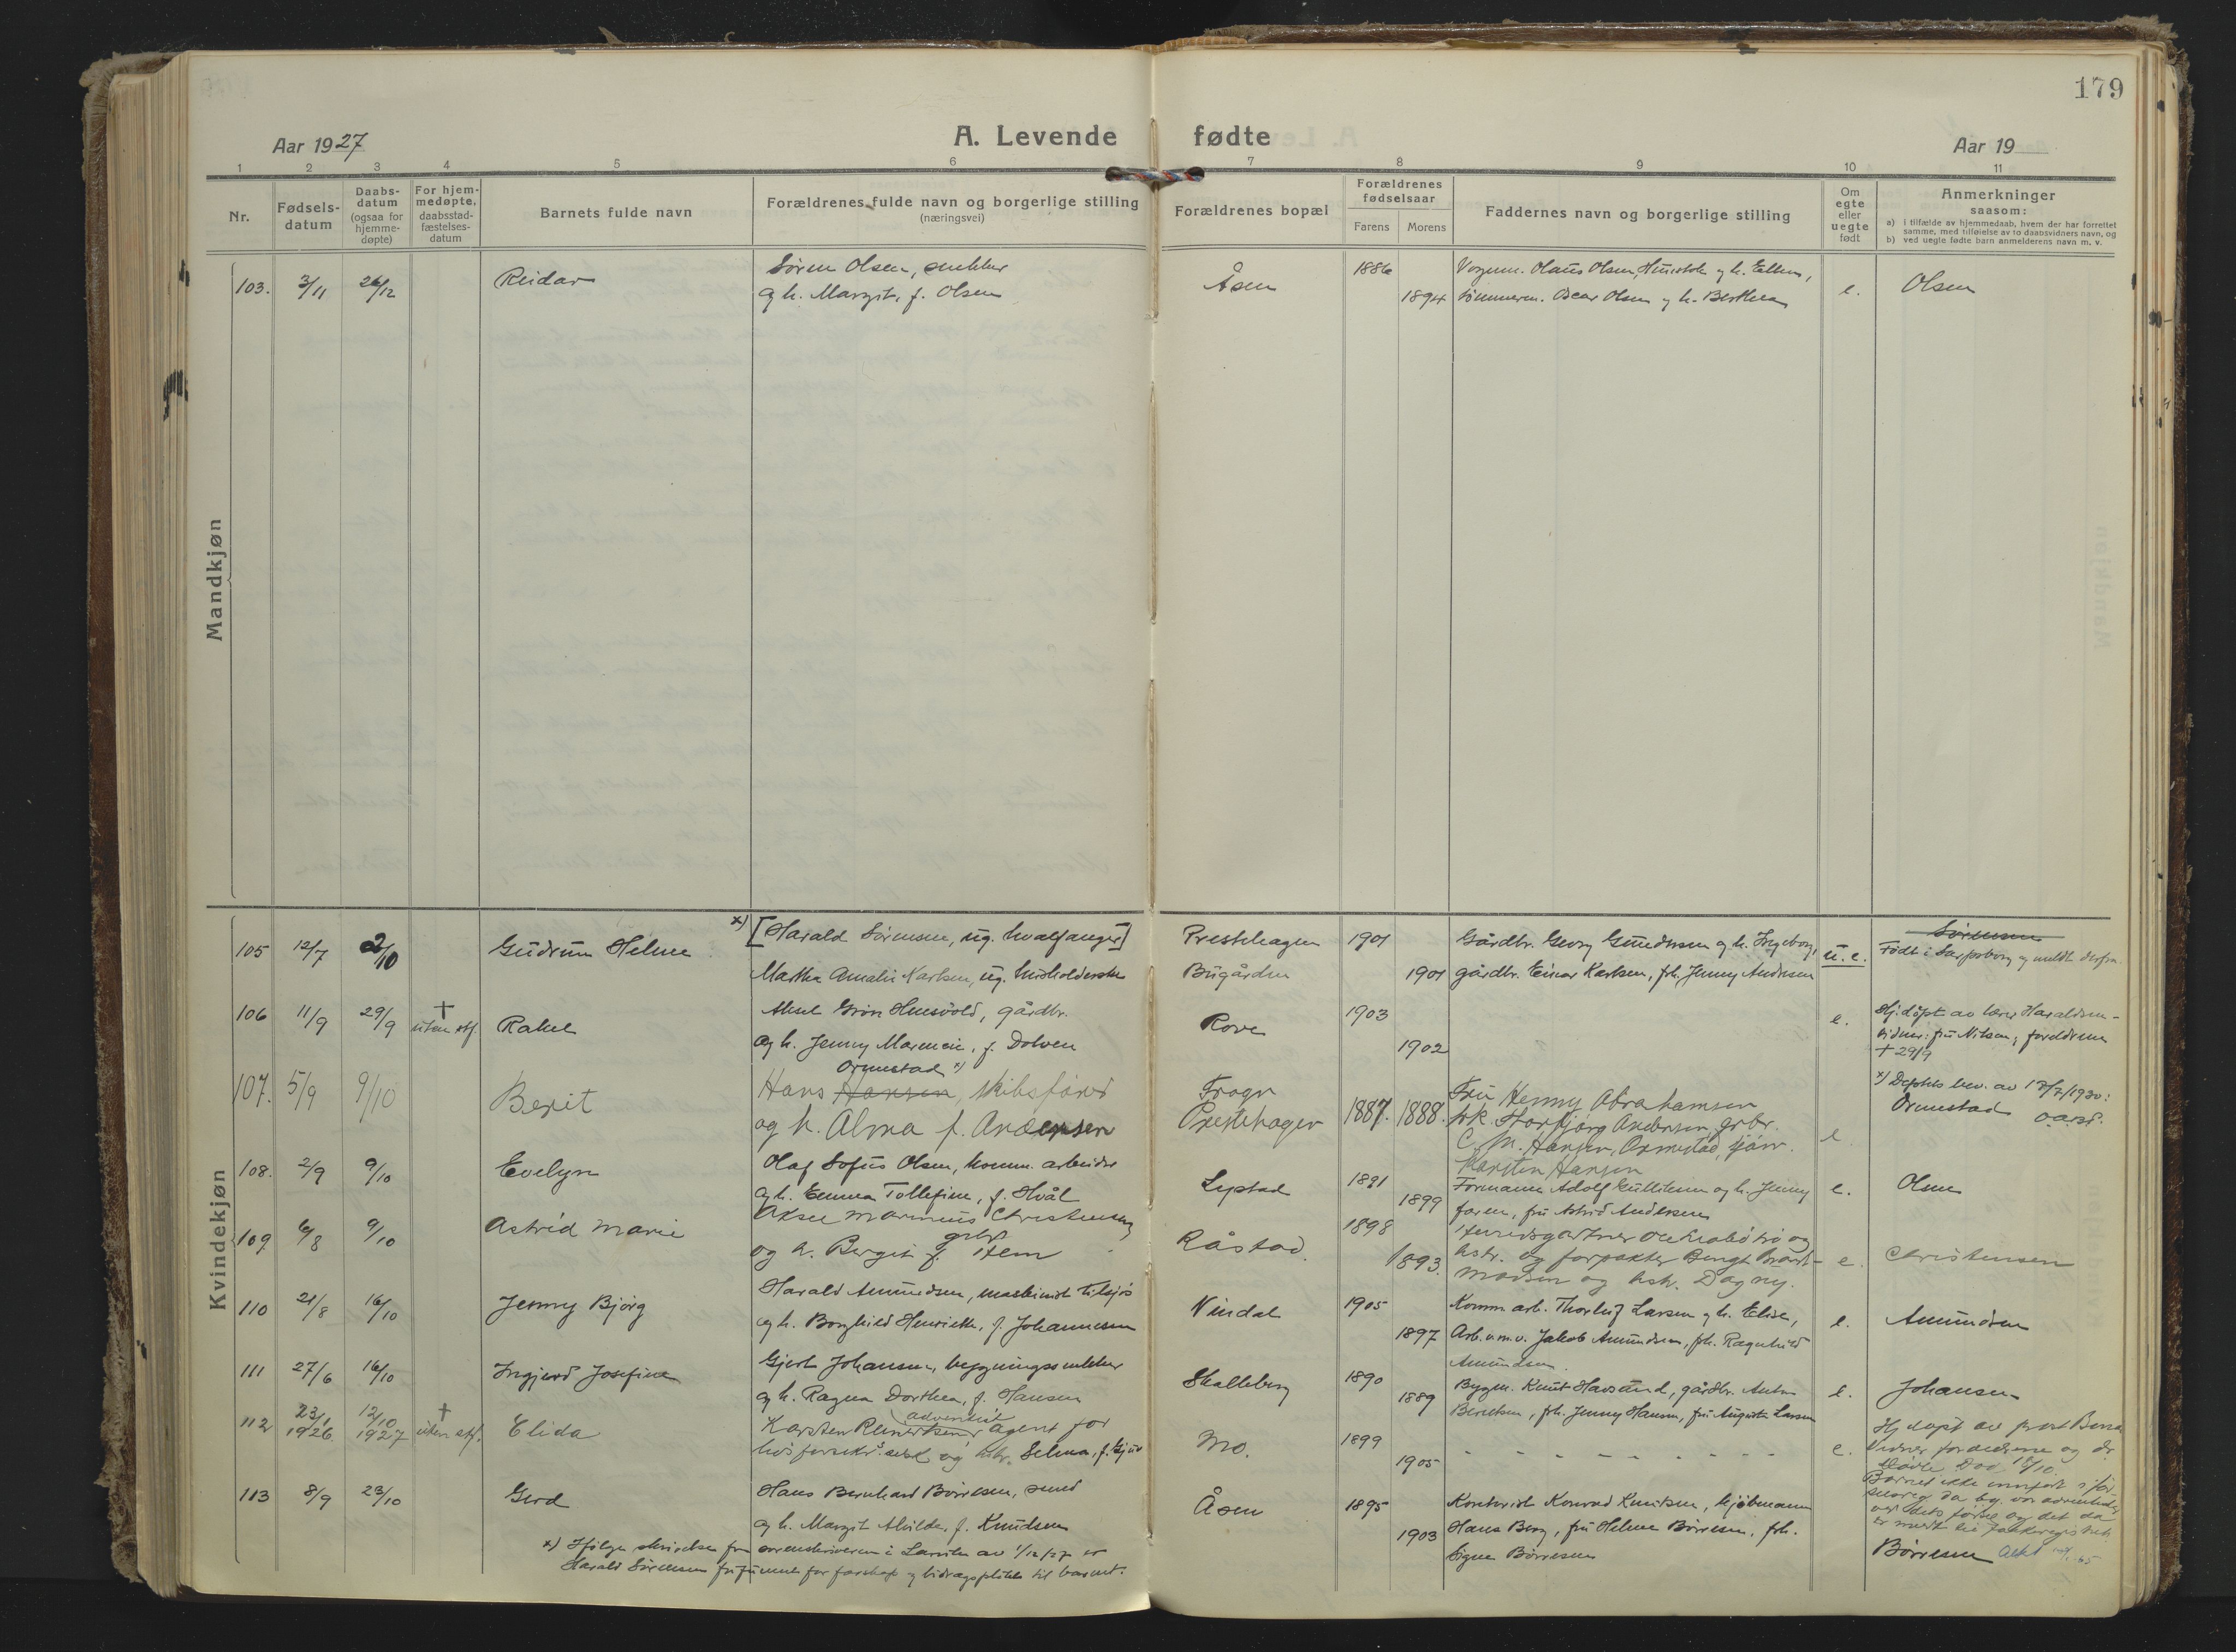 179
Aar 1927
A. Levende fødte
Aar 19
1 2 3 4 5 6 7 8 9 10 11
Nr.
Fødsels-
datum
Daabs-
datum
(ogsaa for
hjemme-
døpte)
For hjem-
medøpte,
daabsstad-
fæstelses-
datum
Barnets fulde navn
Forældrenes fulde navn og borgerlige stilling
(næringsvei)
Forældrenes bopæl
Forældrenes
fødselsaar
Farens Morens
Faddernes navn og borgerlige stilling
Om
egte
eller
uegte
født
Anmerkninger
saasom:
a) i tilfælde av hjemmedaab, hvem der har forrettet
samme, med tilføielse av to daabsvidners navn, og
b) ved uegte fødte barn anmelderens navn m. v.
Mandkjøn
103. 3/11 26/12 Reidar Søren Olsen, snekker Åsen 1886 Olaus Olsen, og h. Ellen, e. Olsen
og h. Margit, f. Olsen 1894 tømmerm. Oscar Olsen og h. Berthea
Kvindekjøn
105 12/7 2/10 Gudrun Helene x) [Harald Sørensen, ug. hvalfanger] Prestehagen 1901 Gårdbr. Georg Gundersen og h. Ingeborg, u.e. Sørensen
Født i Sarpsborg og meldt derfra.
Martha Amalie Karlsen, ug. husholderske Bugården 1901 gårdbr. Einar Karlsen, frk. Jenny Andersen
106 11/9 29/9 † uten stf. Rakel Grøn, gårdbr. Rove 1903 e. Hj. døpt av lærer Haraldsen -
og h. Jenny, f. Dolven 1902 vidner: fru Nilsen, foreldrene
† 29/9
107. 5/9 9/10 Berit Ormestad x)
Hans Hansen, skibsfører Frogn 1887. 1888. Fru Henny Abrahamsen e x) Deptets bev. av 17/7/1930:
Ormestad
og h. Alma f. Andersen Prestehagen frk. Andersen, grbr.
C. M. Hansen, Ormestad, sjøm.
Karsten Hansen
108. 2/9 9/10 Evelyn Olaf Sofus Olsen, komm. arbeider Lystad 1891 Formann Adolf Gulliksen og h. Jenny e. Olsen
og h. Emma Tollefine, f. Hvål 1899 faren, fru Astrid Andersen
109 6/8 9/10 Astrid Marie Aksel Marinius Christensen grbr. Råstad. 1898 og e. Christensen
og h. Bergit f. Item 1893. hstr. og forpakter Bengt
Madsen og hstr. Dagny.
110 21/8 16/10 Jenny Bjørg Harald Amundsen, maskinist tilsjøs Vindal 1905 Komm. arb. Thorleif Larsen og h. Elise, e. Amundsen
og h. Borghild Henriette, f. Johannesen 1897 Arb. Jakob Amundsen, frk. Ragnhild
Amundsen.
111 27/6 16/10 Ingjerd Josefine Gjert Johansen, bygningssnekker Skalleberg 1890 Bygm. Knut, gårdbr. Anton e. Johansen
og h. Ragna Dorthea, f. Hansen 1889 Berntsen, frk. Jenny Hansen, fru Augusta Larsen
112 23/1 1926. 12/10 1927 † uten stf. Elida Karsten adventist agent for Mo. 1899 - - - - - - - e. Hj. døpt av prost
livsforsikr. selsk og hstr. Selma, f. 1905 Vidner foreldrene og dr.
Død 15/10.
Barnet ikke innført i fød-
113 8/9 23/10 Gerd Hans Bernhard Børresen, smed Åsen 1895 Kontorist Konrad Knutsen, kjøbmann
og h. Margit Alvilde, f. Knudsen 1903 Hans Berg, fru Helene Børresen, frk.
Signe Børresen Børresen
x) Ifølge skrivelse fra sorenskriveren i Larvik av 1/12/27 er
Harald Sørensen frifunnet for farskap og bidragsplikt til barnet.